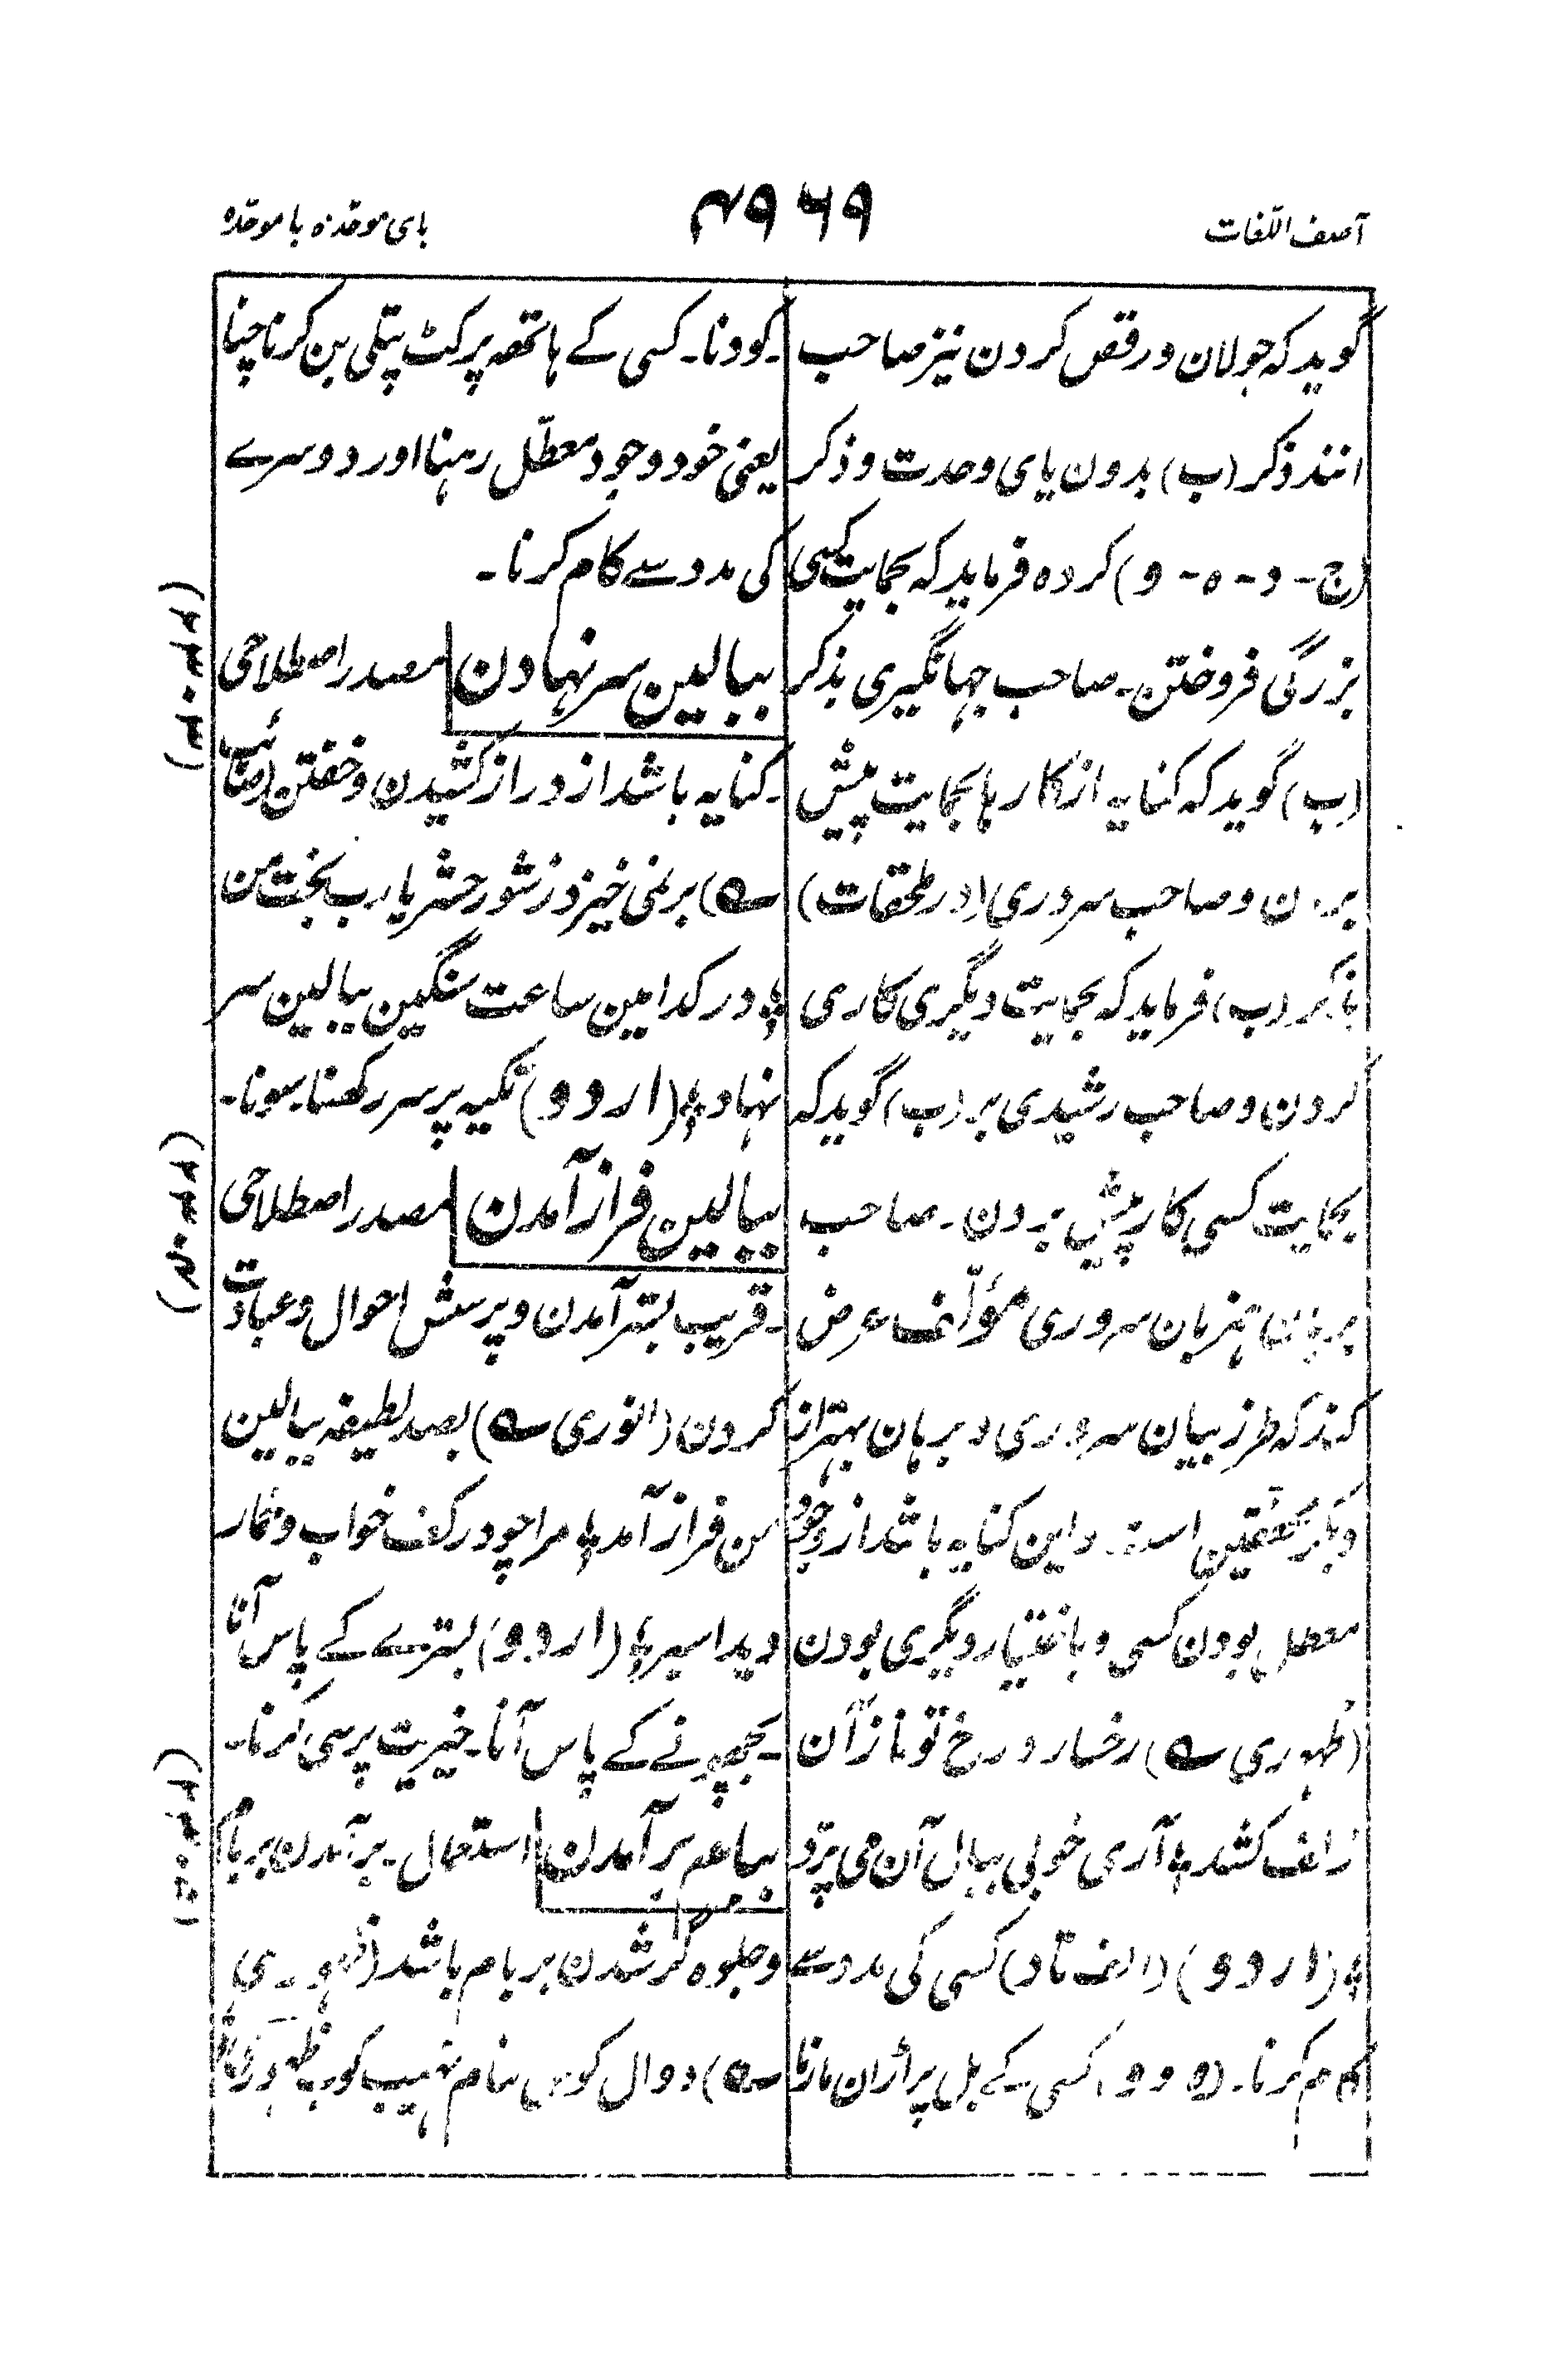 آصف اللّغات
۴۹۶۹
بای موحّدہ با موحّدہ
گوید کہ جولان و رقص کردن نیز صاحب
انند ذکر (ب) بدون یای وحدت و ذکر
(ج - د - ہ - و) کردہ فرماید کہ بحمایت کسی
بزرگی فروختن - صاحب جہانگیری بذکر
(ب) گوید کہ کنایہ از کارہا بحمایت پیش
بردن و صاحب سروری (در ملحقات)
بذکر (ب) فرماید کہ بحمایت دیگری کاری
کردن و صاحب رشیدی بر (ب) گوید کہ
بحمایت کسی کار پیش بردن - صاحب
ہمزبان سروری مؤلّف عرض
کند کہ طرز بیان سروری و برہان بہتر از
دیگر محققین است و این کنایہ باشد از خود
معطل بودن کسی و باختیار دیگری بودن
(ظہوری ؎) رخسار و رخ تو ناز آن
زلف کشد ؛ آری خوبی ببال آن می پرّد
؛ (اردو) (الف تا د) کسی کی مدد سے
کام کرنا - (ہ و و) کسی کے بل پر اڑان مارنا
- کودنا - کسی کے ہاتھہ پر کٹ پتلی بن کر ناچنا
یعنی خود وجود معطّل رہنا اور دوسرے
کی مدد سے کام کرنا -
ببالین سر نہادن مصدر اصطلاحی
- کنایہ باشد از دراز کشیدن و خفتن (صائب
؎) بر نمی خیزد ز شور حشر یارب بخت من
؛ در کدامین ساعت سنگین ببالین سر
نہاد ؛ (اردو) تکیہ پر سر رکھنا - سونا -
ببالین فراز آمدن مصدر اصطلاحی
- قریب بستر آمدن و پرسش احوال و عیادت
کردن (انوری ؎) بصد لطیفہ ببالین
من فراز آمد ؛ مرا چو در کف خواب و خمار
دید اسیر ؛ (اردو) بسترے کے پاس آنا
- بچھونے کے پاس آنا - خیریت پرسی کرنا -
ببام بر آمدن استعمال - بر آمدن بر بام
و جلوہ گر شدن بر بام باشد (ظہوری
؎) دوال کوس بنام نہیب کوب ظہوری